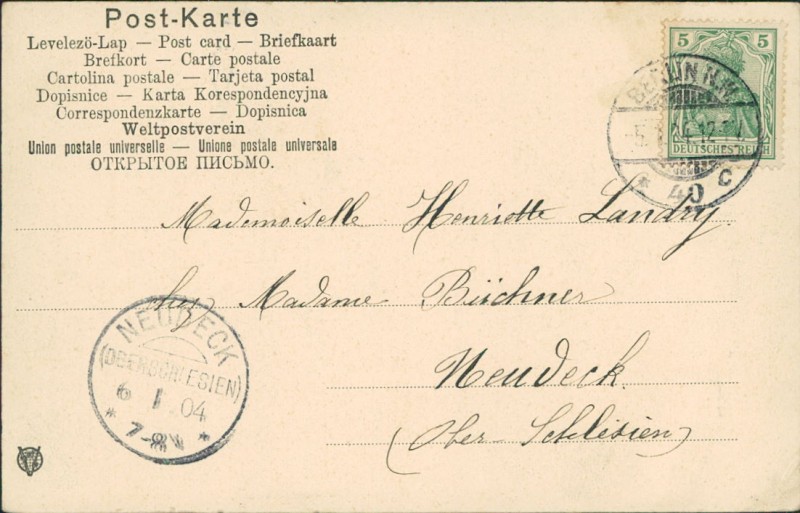 Post-Karte
Levelezö-Lap — Post card — Briefkaart
Brefkort — Carte postale
Cartolina postale — Tarjeta postal
Dopisnice — Karta Korespondencyjna
Correspondenzkarte — Dopisnica
Weltpostverein
Union postale universelle — Unione postale universale
ОТКРЫТОЕ ПИСЬМО.
5 5
DEUTSCHES REICH
BERLIN N.W.
* 40 c
Mademoiselle Henriette Landry.
chez Madame Büchner
Neudeck.
(Ober Schlesien)
NEUDECK
(OBERSCHLESIEN)
6 1 04
* 7-8 V *